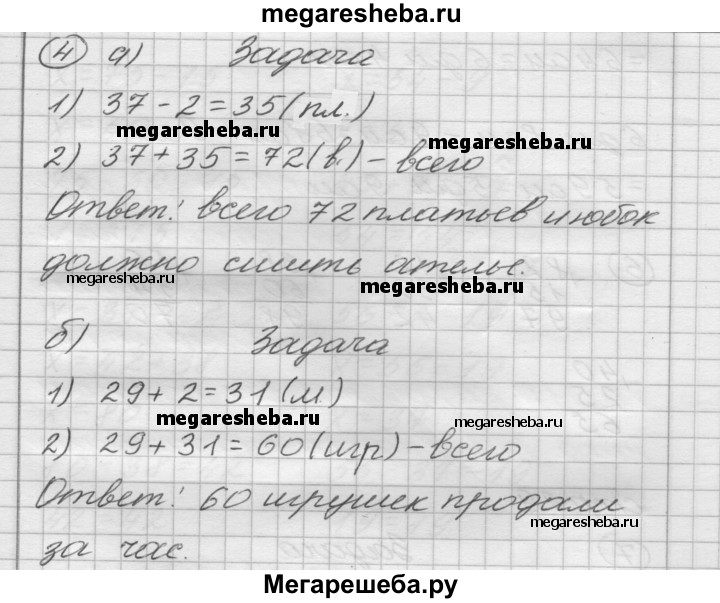 megaresheba.ru
4 а) Задача
1) 37 - 2 = 35 (пл.)
megaresheba.ru
megaresheba.ru
2) 37 + 35 = 72 (в.) - всего
Ответ: всего 72 платьев и юбок
должно сшить ателье.
megaresheba.ru
megaresheba.ru
б) Задача
1) 29 + 2 = 31 (м)
megaresheba.ru
megaresheba.ru
2) 29 + 31 = 60 (игр) - всего
Ответ: 60 игрушек продали
megaresheba.ru
за час.
Мегарешеба.ру